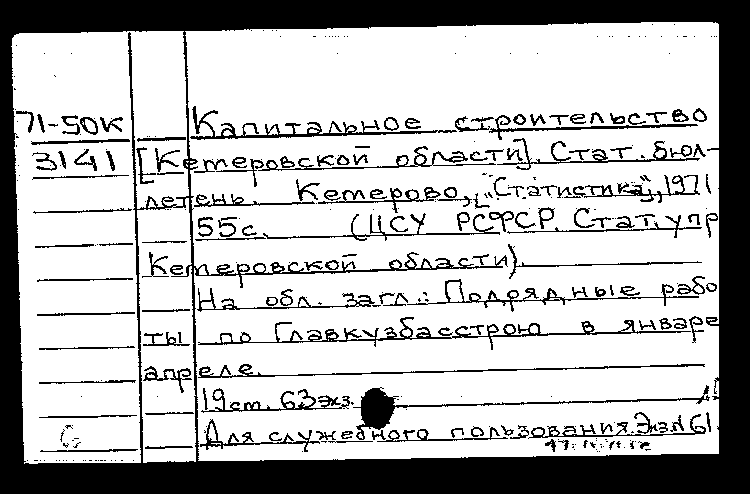 71-50К Капитальное строительство
3141 [Кемеровской области]. Стат. бюл-
летень. Кемерово, ["Статистика"], 1971
55с. (ЦСУ РСФСР. Стат. упр
Кемеровской области).
На обл. загл.: Подрядные рабо
ты по Главкузбасстрою в январе
апреле.
19см. 63экз.
Для служебного пользования. Экз.N61.